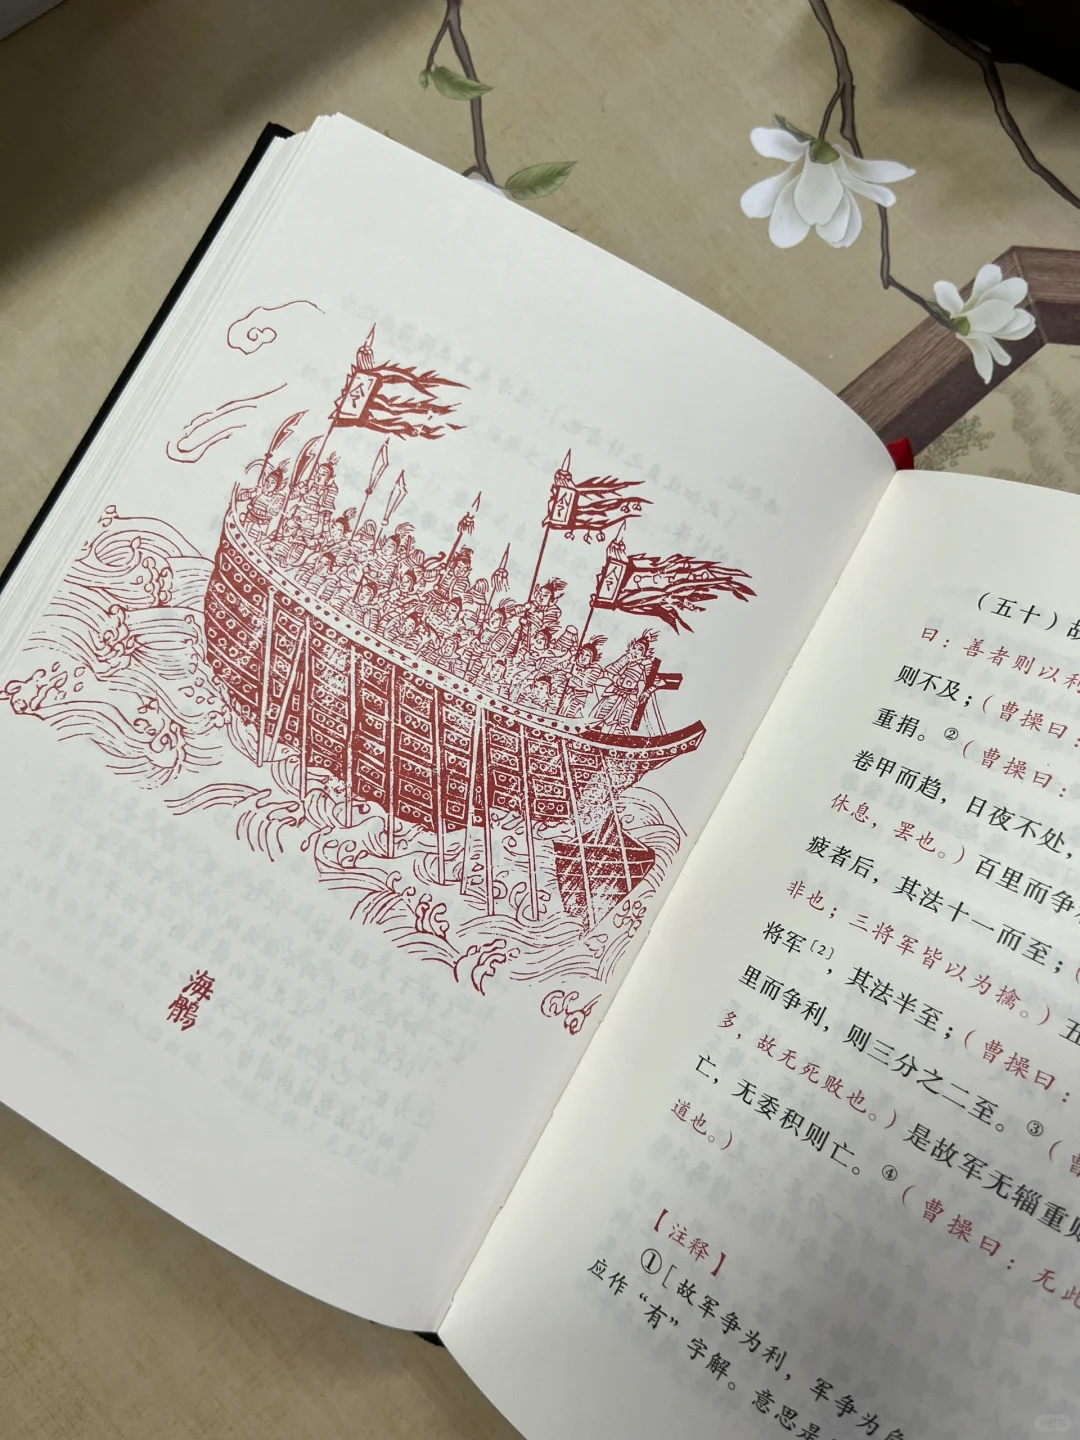 令
令
令
海鶻
（五十）故
曰：善者则以利
则不及；（曹操曰：
重捐。②（曹操曰：
卷甲而趋，日夜不处，
休息，罢也。）百里而争
疲者后，其法十一而至；（
非也；三将军皆以为擒。）五
将军［2］，其法半至；（曹操曰：
里而争利，则三分之二至。③（曹
多，故无死败也。）是故军无辎重则
亡，无委积则亡。④（曹操曰：无此
道也。）
【注释】
①［故军争为利，军争为危
应作“有”字解。意思是